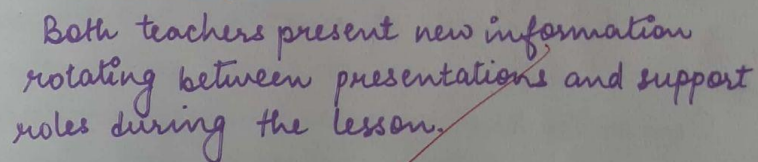 Both teachers present new information
rotating between presentations and support
roles during the lesson.